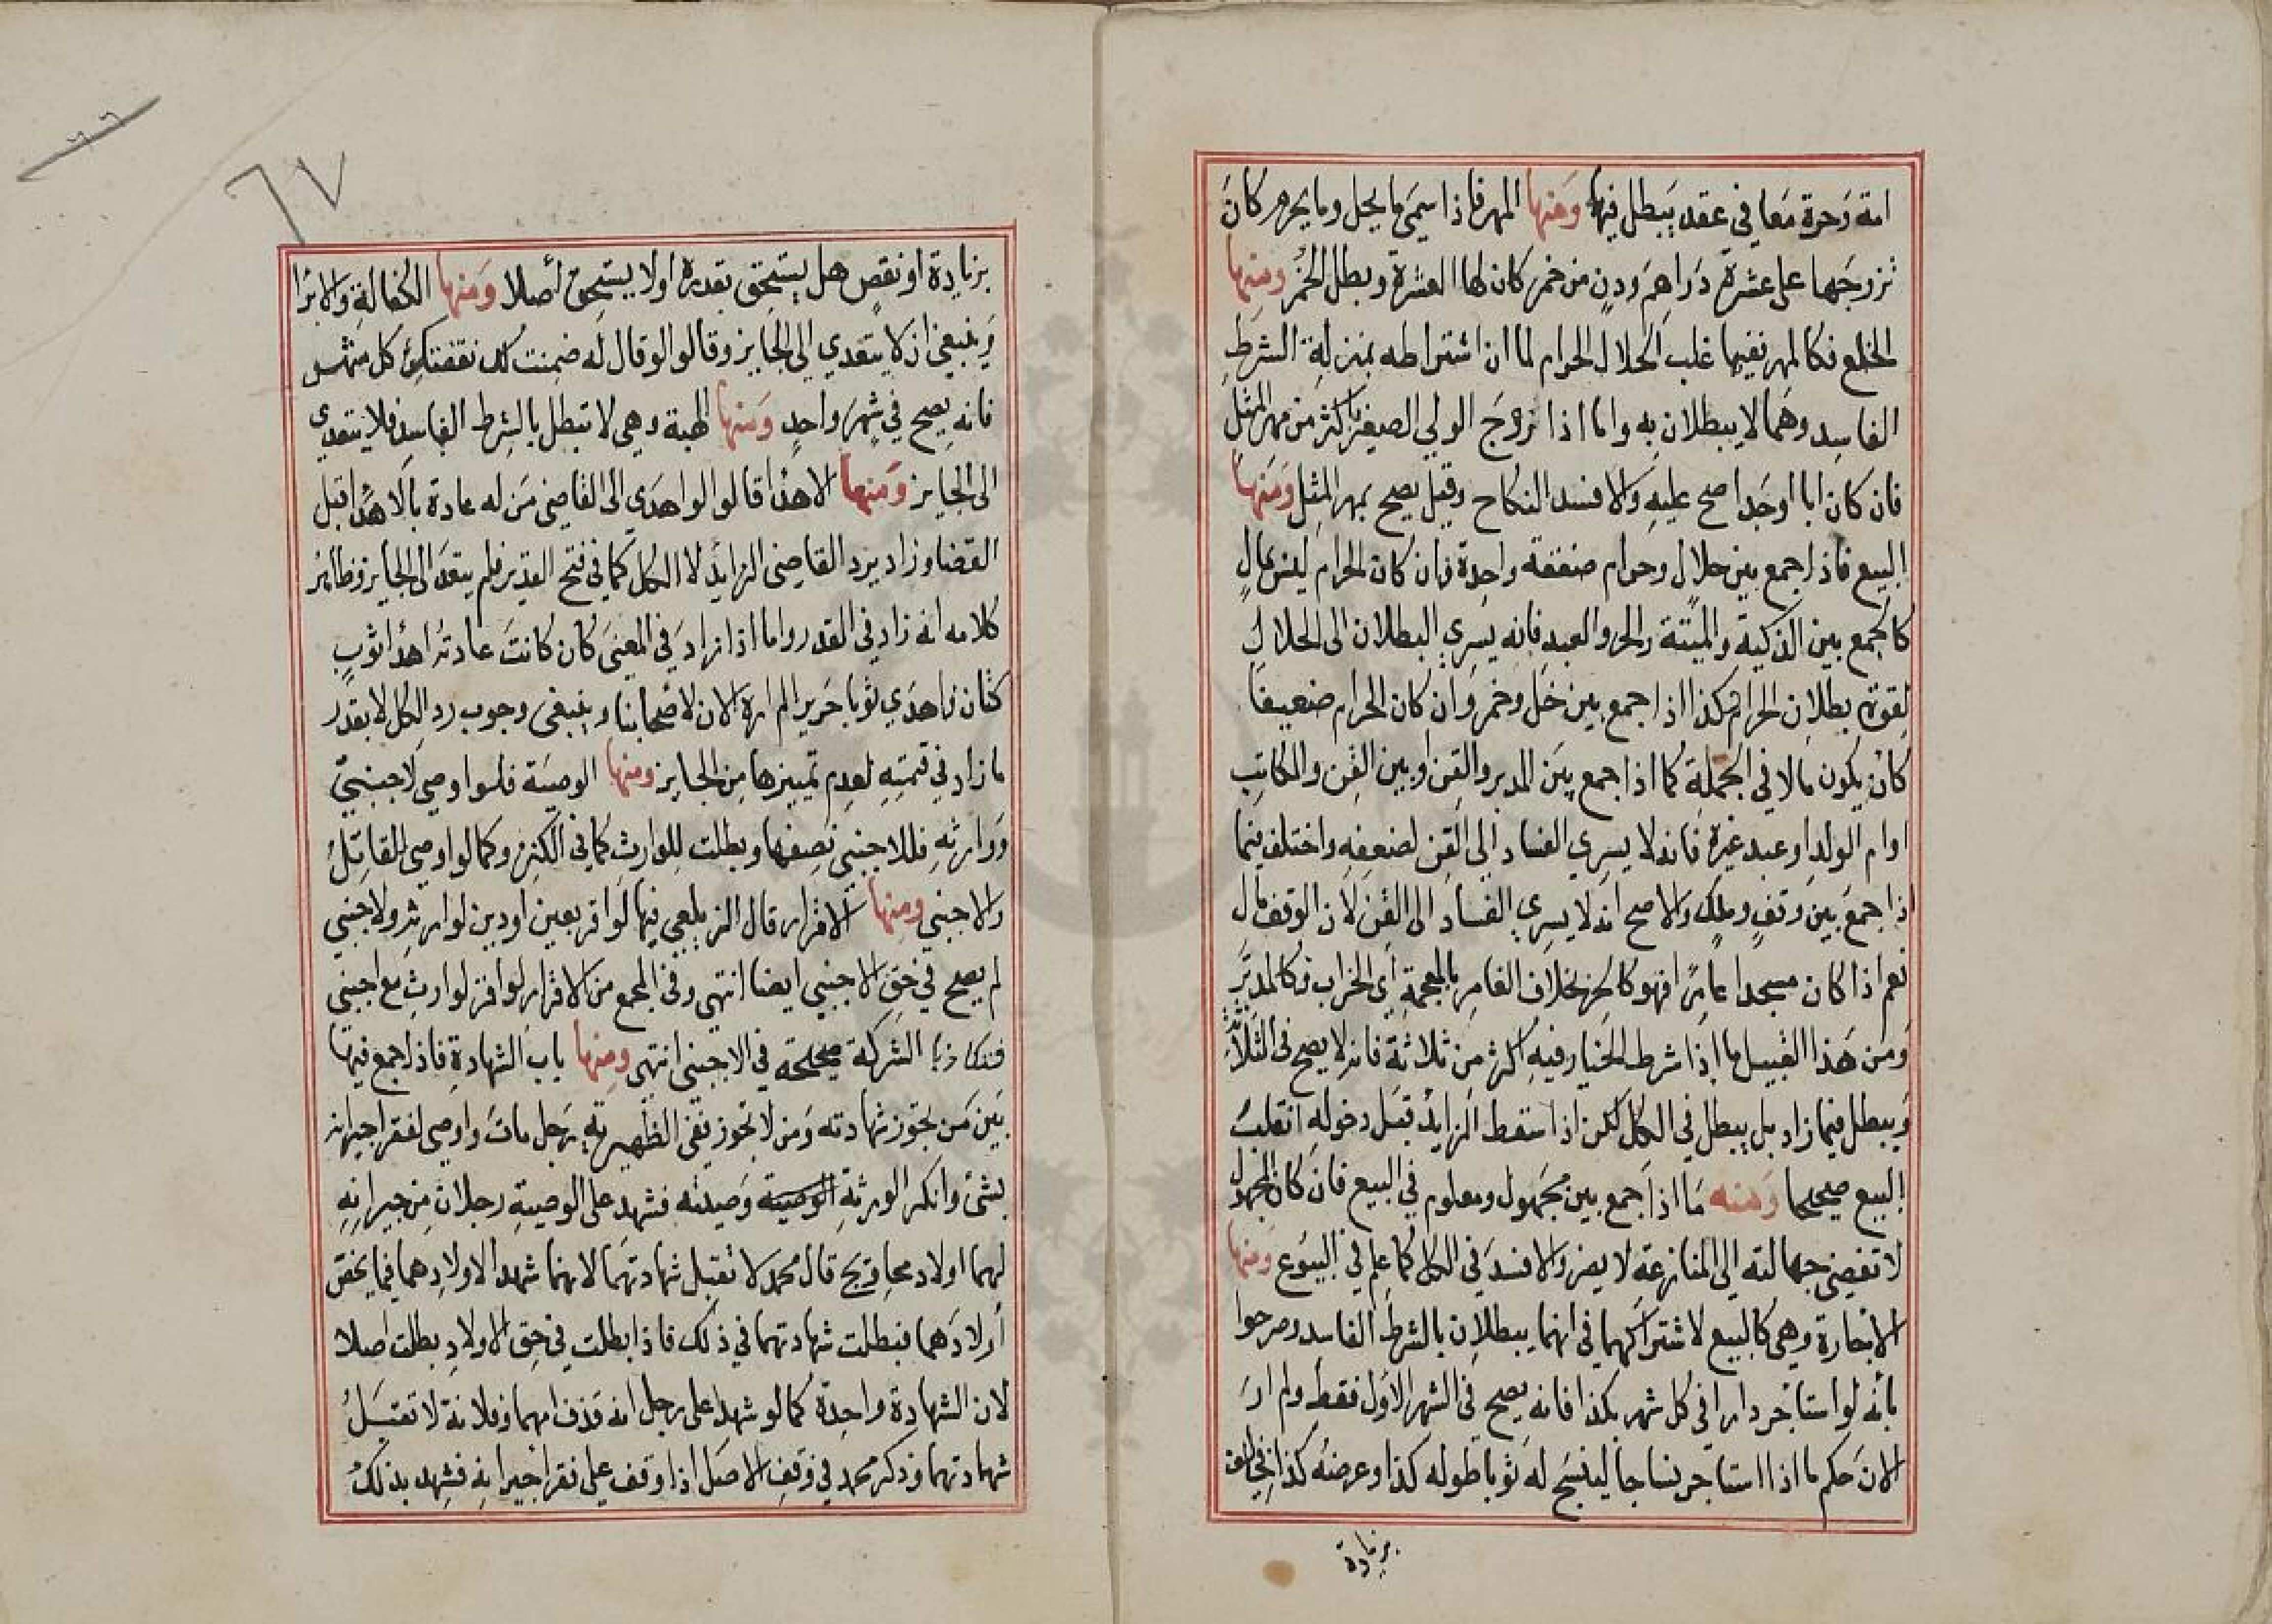 امة وحرة معا في عقد يبطل فيها ومنها المهر فاذا سمى ما يحل وما يحرم كان
تزوجها على عشرة دراهم ودن من خمر كان لها العشرة وبطل الخمر ومنها
الخلع فكالمهر نفيهما غلب الحلال الحرام لما ان اشتراطه بمنزلة الشرط
الفاسد وهما لا يبطلان به واما اذا زوج الولي الصغير باكثر من مهر المثل
فان كان ابا او جدا صح عليه والا فسد النكاح وقيل يصح بمهر المثل ومنها
البيع فاذا جمع بين حلال وحرام صفقة واحدة فان كان الحرام ليس بمال
كالجمع بين الذكية والميتة والحر والعبد فانه يسري البطلان الى الحلال
لقوة بطلان الحرام وكذا اذا جمع بين خل وخمر وان كان الحرام ضعيفا
كان يكون مالا في الجملة كما اذا جمع بين المدبر والقن او بين القن والمكاتب
او ام الولد او عبد غيره فانه لا يسري الفساد الى القن لضعفه واختلف فيما
اذا جمع بين وقف وملك والاصح انه لا يسري الفساد الى القن لان الوقف مال
نعم اذا كان مسجدا عامرا فهو كالحر بخلاف الغامر بالمعجمة اي الخراب فكالمدبر
ومن هذا القبيل ما اذا شرط الخيار فيه اكثر من ثلاثة فانه لا يصح في الثلاثة
ويبطل فيما زاد بل يبطل في الكل لكن اذا اسقط الزايد قبل دخوله انقلب
البيع صحيحا ومنه ما اذا جمع بين مجهول ومعلوم في البيع فان كان المجهول
لا تفضي جهالته الى المنازعة لا يضر والا فسد في الكل كما علم في البيوع ومنها
الاجارة وهي كالبيع لاشتراكهما في انهما يبطلان بالشرط الفاسد وصرحوا
بانه لو استاجر دارا في كل شهر بكذا فانه يصح في الشهر الاول فقط ولم ار
الان حكم ما اذا استاجر نساجا لينسج له ثوبا طوله كذا وعرضه كذا فخالف
بزيادة
٦٧
بزيادة او نقص هل يستحق بقدره او لا يستحق اصلا ومنها الكفالة والابرا
وينبغي ان لا يتعدي الى الجايز وقالوا لو قال له ضمنت لك نفقتك كل شهر
فانه يصح في شهر واحد ومنها الهبة وهي لا تبطل بالشرط الفاسد فلا يتعدي
الى الجايز ومنها الاهدا قالوا لو اهدي الى القاضي من له عادة بالاهدا قبل
القضا وزاد يرد القاضي الزايد لا الكل كما في فتح القدير فلم يتعد الى الجايز وظاهر
كلامه انه زاد في القدر واما اذا زاد في المعنى كان كانت عادته اهدا ثوب
كتان فاهدي ثوبا حرير الم اره الان لاصحابنا وينبغي وجوب رد الكل لا بقدر
ما زاد في قيمته لعدم تمييزها من الجايز ومنها الوصية فلو اوصي لاجنبي
ووارثه فللاجنبي نصفها وبطلت للوارث كما في الكنز وكما لو اوصي للقاتل
والاجنبي ومنها الاقرار قال الزيلعي فيما لو اقر بعين او دين لوارثه ولاجنبي
لم يصح في حق الاجنبي ايضا انتهي وفي المجمع من الاقرار لو اقر لوارث مع اجنبي
فتكاذبا الشركة صححه في الاجنبي انتهي ومنها باب الشهادة فاذا جمع فيها
بين من تجوز شهادته ومن لا تجوز ففي الظهيرية رجل مات واوصى لفقراجيرانه
بشئ وانكر الورثة الوصية وصيته فشهد على الوصية رجلان من جيرانه
لهما اولاد محاويج قال محمد لا تقبل شهادتهما لانهما شهدا لاولادهما فيما يخص
اولادهما فبطلت شهادتهما في ذلك فاذا بطلت في حق الاولاد بطلت اصلا
لان الشهادة واحدة كما لو شهدا على رجل انه قذف امهما وفلانة لا تقبل
شهادتهما وذكر محمد في وقف الاصل اذا وقف على فقراجيرانه فشهد بذلك